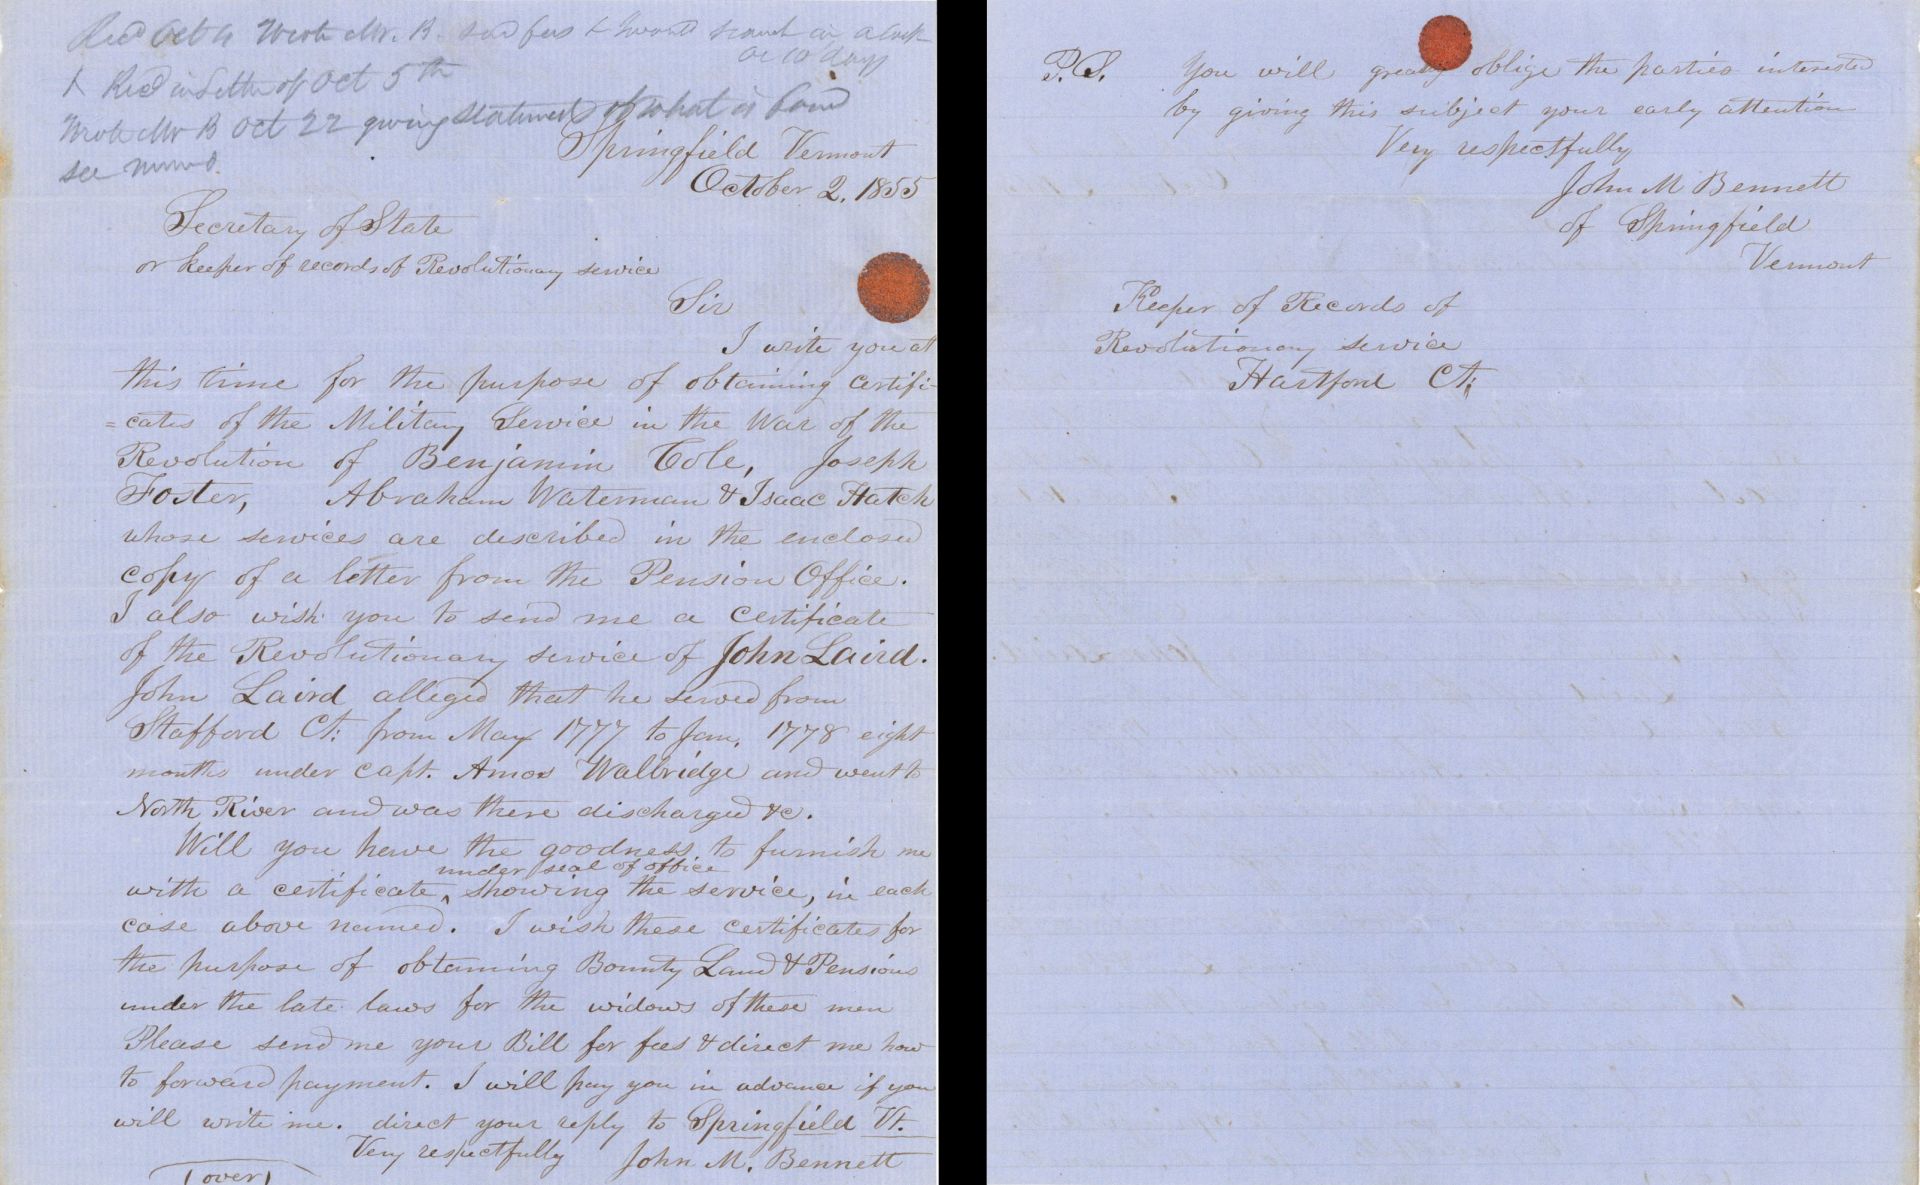 Rec'd Oct 4 Wrote Mr. B. send fees & I would search in a week
or 10 days
Rec'd in Letter of Oct 5th
Wrote Mr B Oct 22 giving statement of what is found
see
Springfield Vermont
October 2, 1855
Secretary of State
or keeper of records of Revolutionary service
Sir
I write you at
this time for the purpose of obtaining certifi-
=cates of the Military Service in the War of the
Revolution of Benjamin Cole, Joseph
Foster, Abraham Waterman & Isaac Hatch
whose services are described in the enclosed
copy of a letter from the Pension Office.
I also wish you to send me a certificate
of the Revolutionary service of John Laird.
John Laird alleged that he served from
Stafford Ct: from May 1777 to Jan, 1778 eight
months under capt. Amos Walbridge and went to
North River and was there discharged &c.
Will you have the goodness to furnish me
under seal of office
with a certificate ‸ showing the service, in each
case above named. I wish these certificates for
the purpose of obtaining Bounty Land & Pensions
under the late laws for the widows of these men
Please send me your Bill for fees & direct me how
to forward payment. I will pay you in advance if you
will write me. direct your reply to Springfield Vt.
Very respectfully John M. Bennett
(over)
P.S. You will greatly oblige the parties interested
by giving this subject your early attention
Very respectfully
John M Bennett
of Springfield
Vermont
Keeper of Records of
Revolutionary service
Hartford Ct;